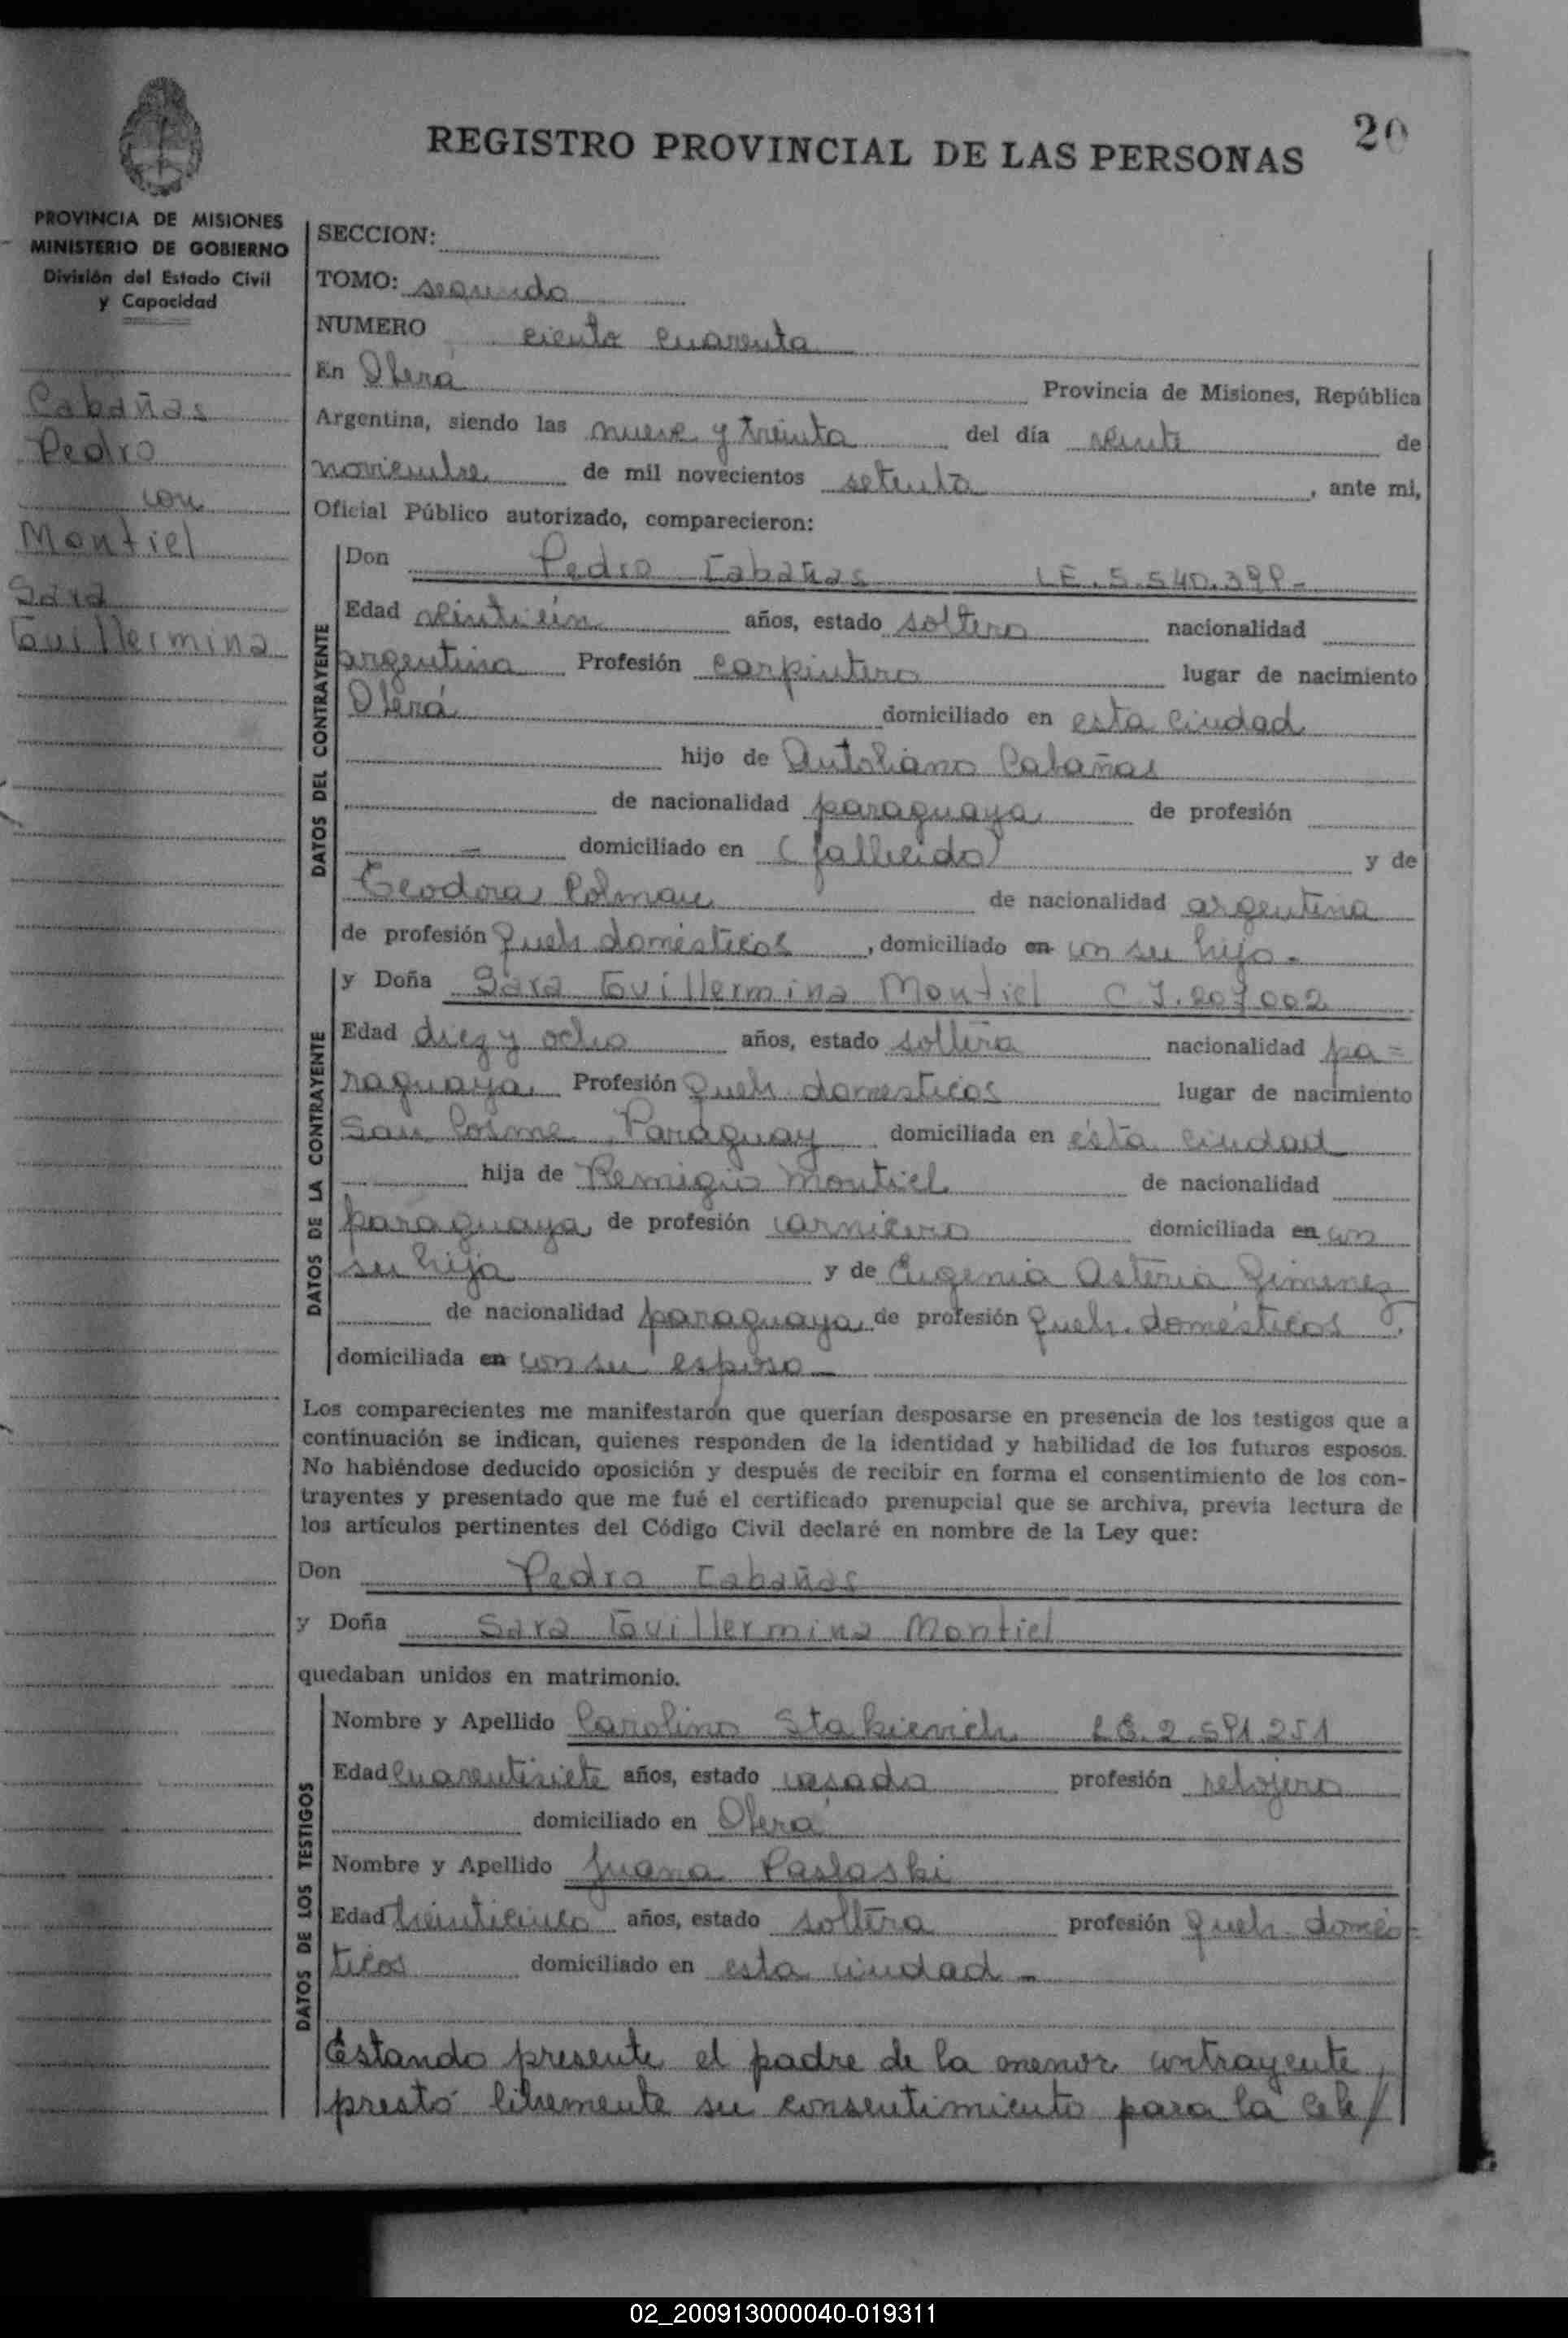 20
REGISTRO PROVINCIAL DE LAS PERSONAS
PROVINCIA DE MISIONES
MINISTERIO DE GOBIERNO
División del Estado Civil
y Capacidad
Cabañas
Pedro
con
Montiel
Sara
Guillermina
SECCION:
TOMO: segundo
NUMERO ciento cuarenta
En Oberá Provincia de Misiones, República
Argentina, siendo las nueve y treinta del día veinte de
noviembre de mil novecientos setenta, ante mi,
Oficial Público autorizado, comparecieron:
DATOS DEL CONTRAYENTE
Don Pedro Cabañas LE. 5.540.399-
Edad veintiún años, estado soltero nacionalidad
argentina Profesión carpintero lugar de nacimiento
Oberá domiciliado en esta ciudad
hijo de Cabañas
de nacionalidad paraguaya de profesión
- domiciliado en (fallecido) y de
Teodora Colman de nacionalidad argentina
de profesión Queh. domésticos, domiciliado en con su hijo.-
DATOS DE LA CONTRAYENTE
y Doña Sara Guillermina Montiel C I. 207002
Edad diez y ocho años, estado soltera nacionalidad pa=
raguaya Profesión Queh. domesticos lugar de nacimiento
San Cosme Paraguay domiciliada en ésta ciudad
hija de Remigio Montiel de nacionalidad
paraguaya, de profesión carnicero domiciliada en con
su hija y de Eugenia Asteria Gimenez
de nacionalidad paraguaya, de profesión Queh. domésticos,
domiciliada en con su esposo-
Los comparecientes me manifestarón que querían desposarse en presencia de los testigos que a
continuación se indican, quienes responden de la identidad y habilidad de los futuros esposos.
No habiéndose deducido oposición y después de recibir en forma el consentimiento de los con-
trayentes y presentado que me fué el certificado prenupcial que se archiva, previa lectura de
los artículos pertinentes del Código Civil declaré en nombre de la Ley que:
Don Pedro Cabañas
y Doña Sara Guillermina Montiel
quedaban unidos en matrimonio.
DATOS DE LOS TESTIGOS
Nombre y Apellido Carolino Stakievich LE. 2.591.251
Edad cuarentisiete años, estado casado profesión relojero
domiciliado en Oberá
Nombre y Apellido Juana Pasloski
Edad treinticinco años, estado soltera profesión Queh. domés-
ticos domiciliado en esta ciudad-
Estando presente el padre de la menor contrayente,
prestó libremente su consentimiento para la cele/
02_200913000040-019311